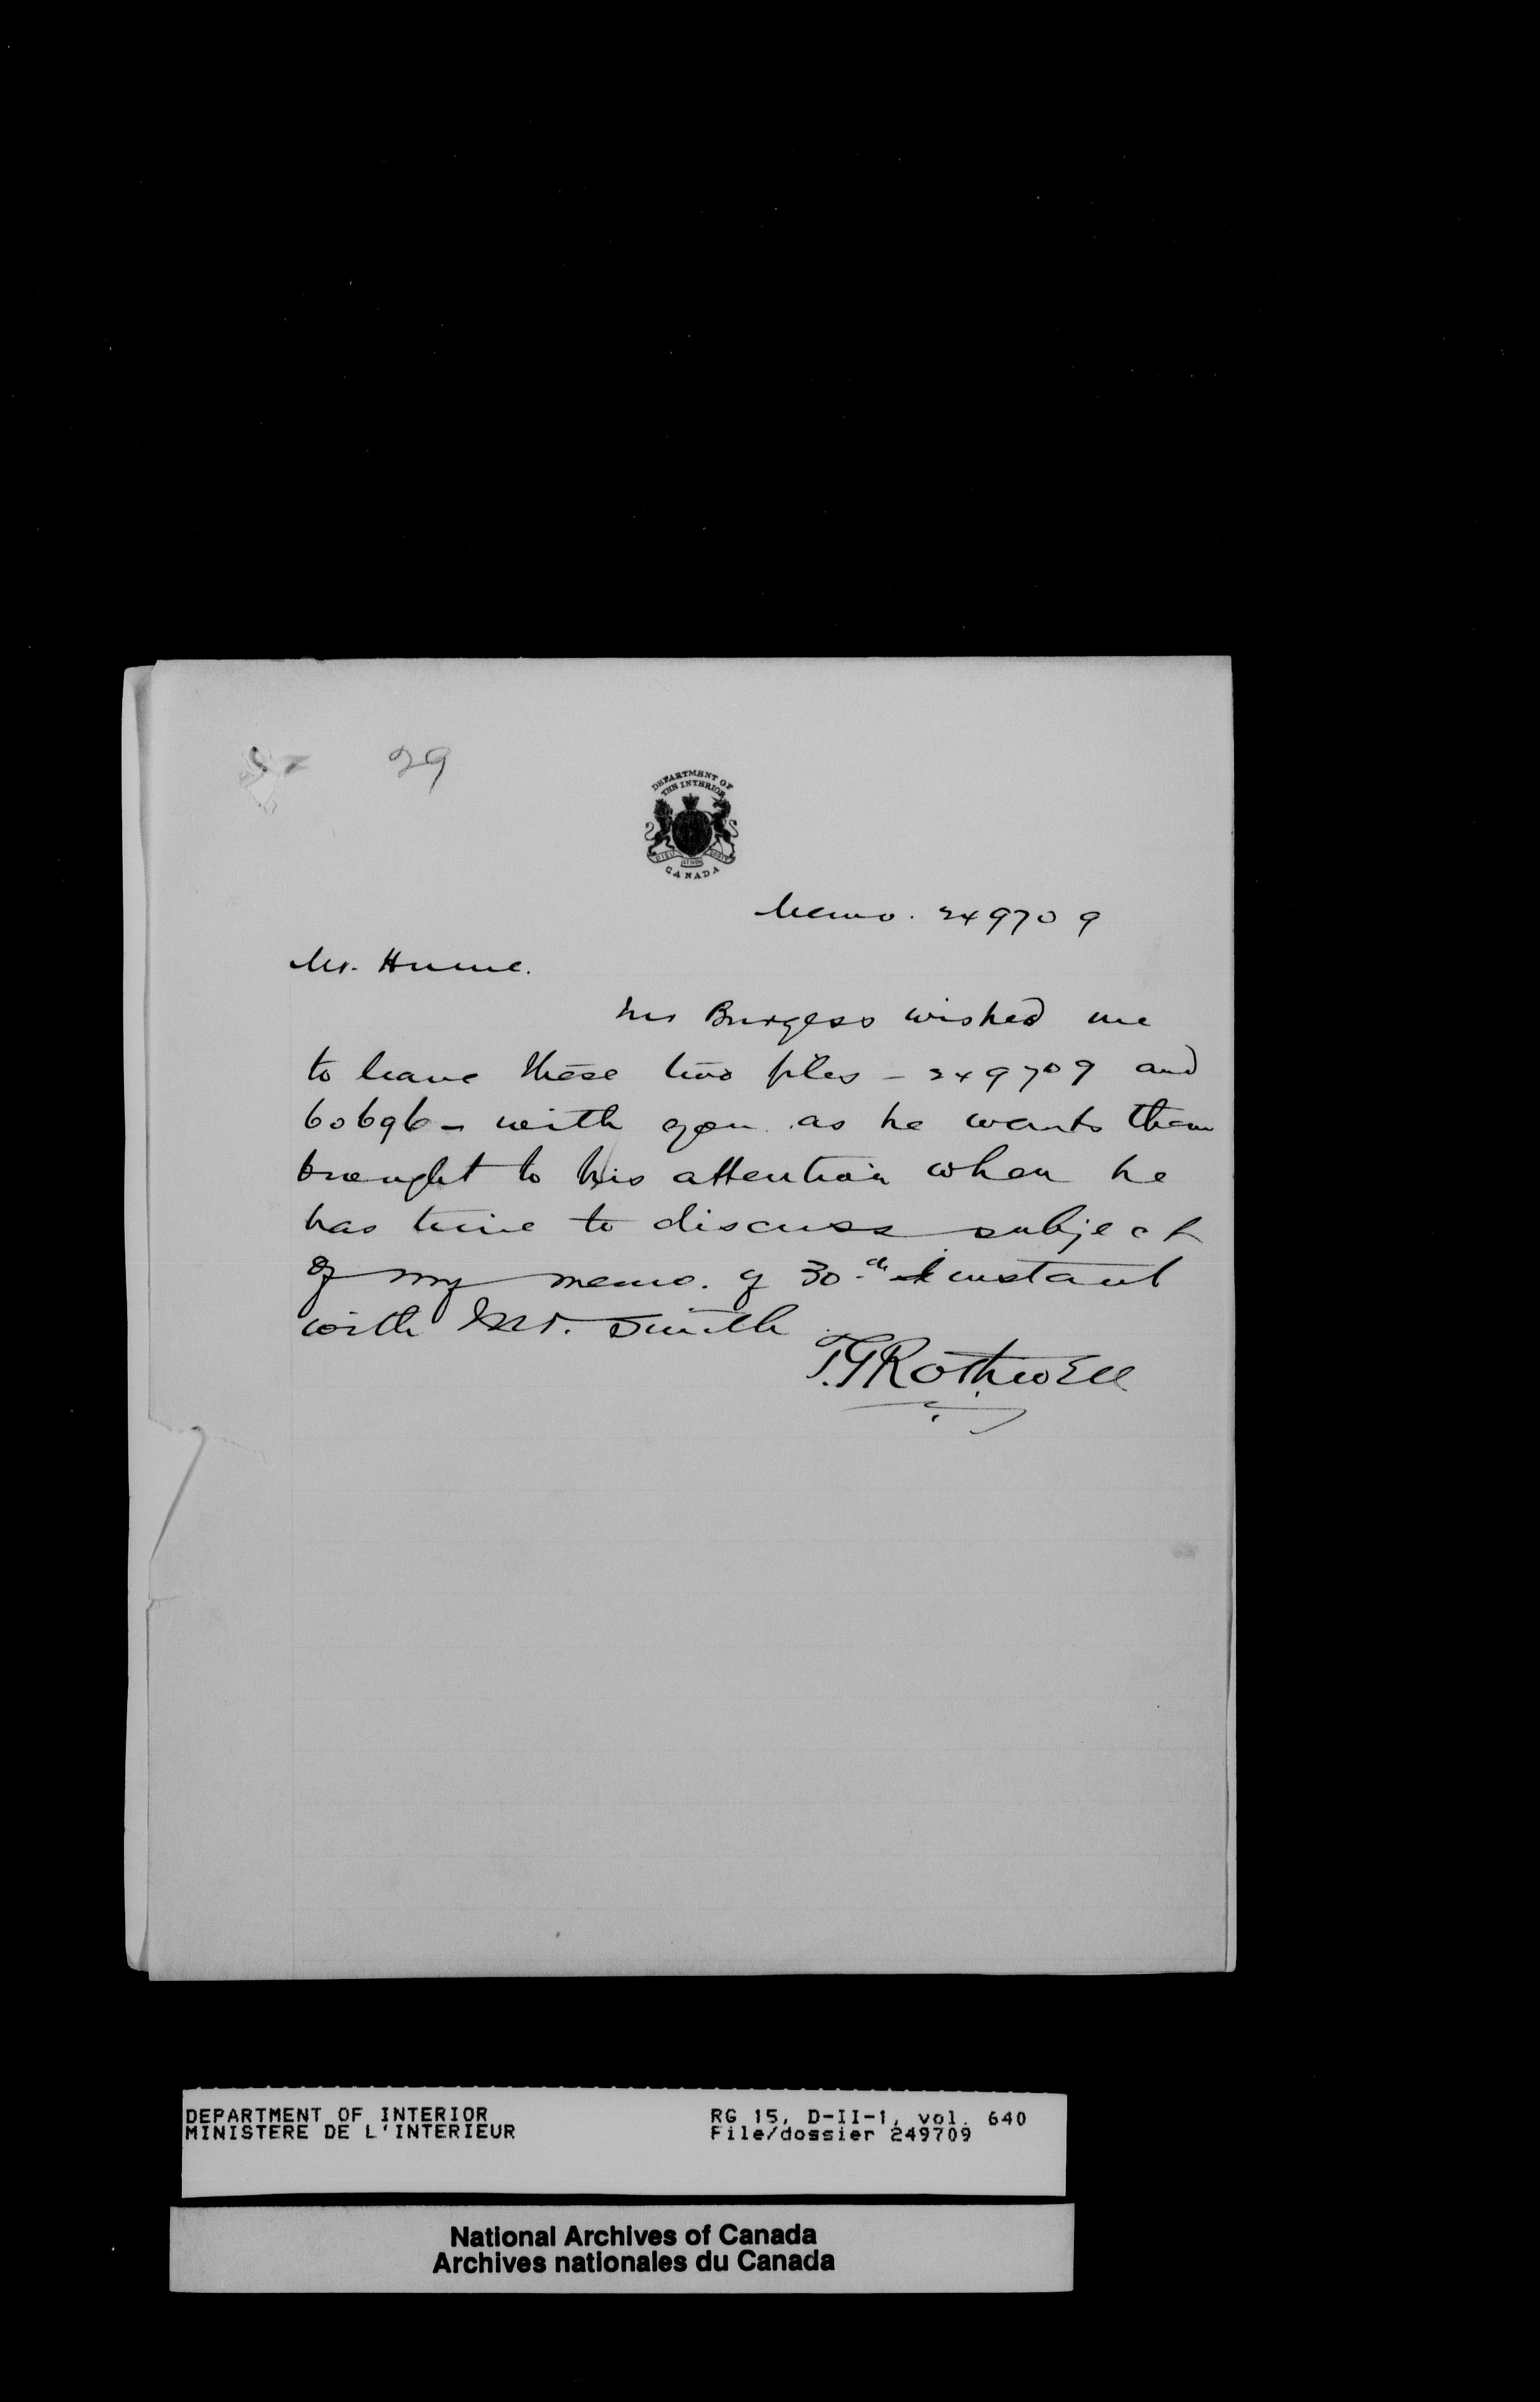 29
DEPARTMENT OF
THE INTERIOR
CANADA
Memo. 249709
Mr. Hume.
Mr Burgess wished me
to leave these two files - 249709 and
60696 - with you as he wants them
brought to his attention when he
has time to discuss subject
of my memo. of 30th instant
with Mr. Smith
T.G Rothwell
DEPARTMENT OF INTERIOR
MINISTERE DE L'INTERIEUR
RG 15, D-II-1, vol. 640
File/dossier 249709
National Archives of Canada
Archives nationales du Canada